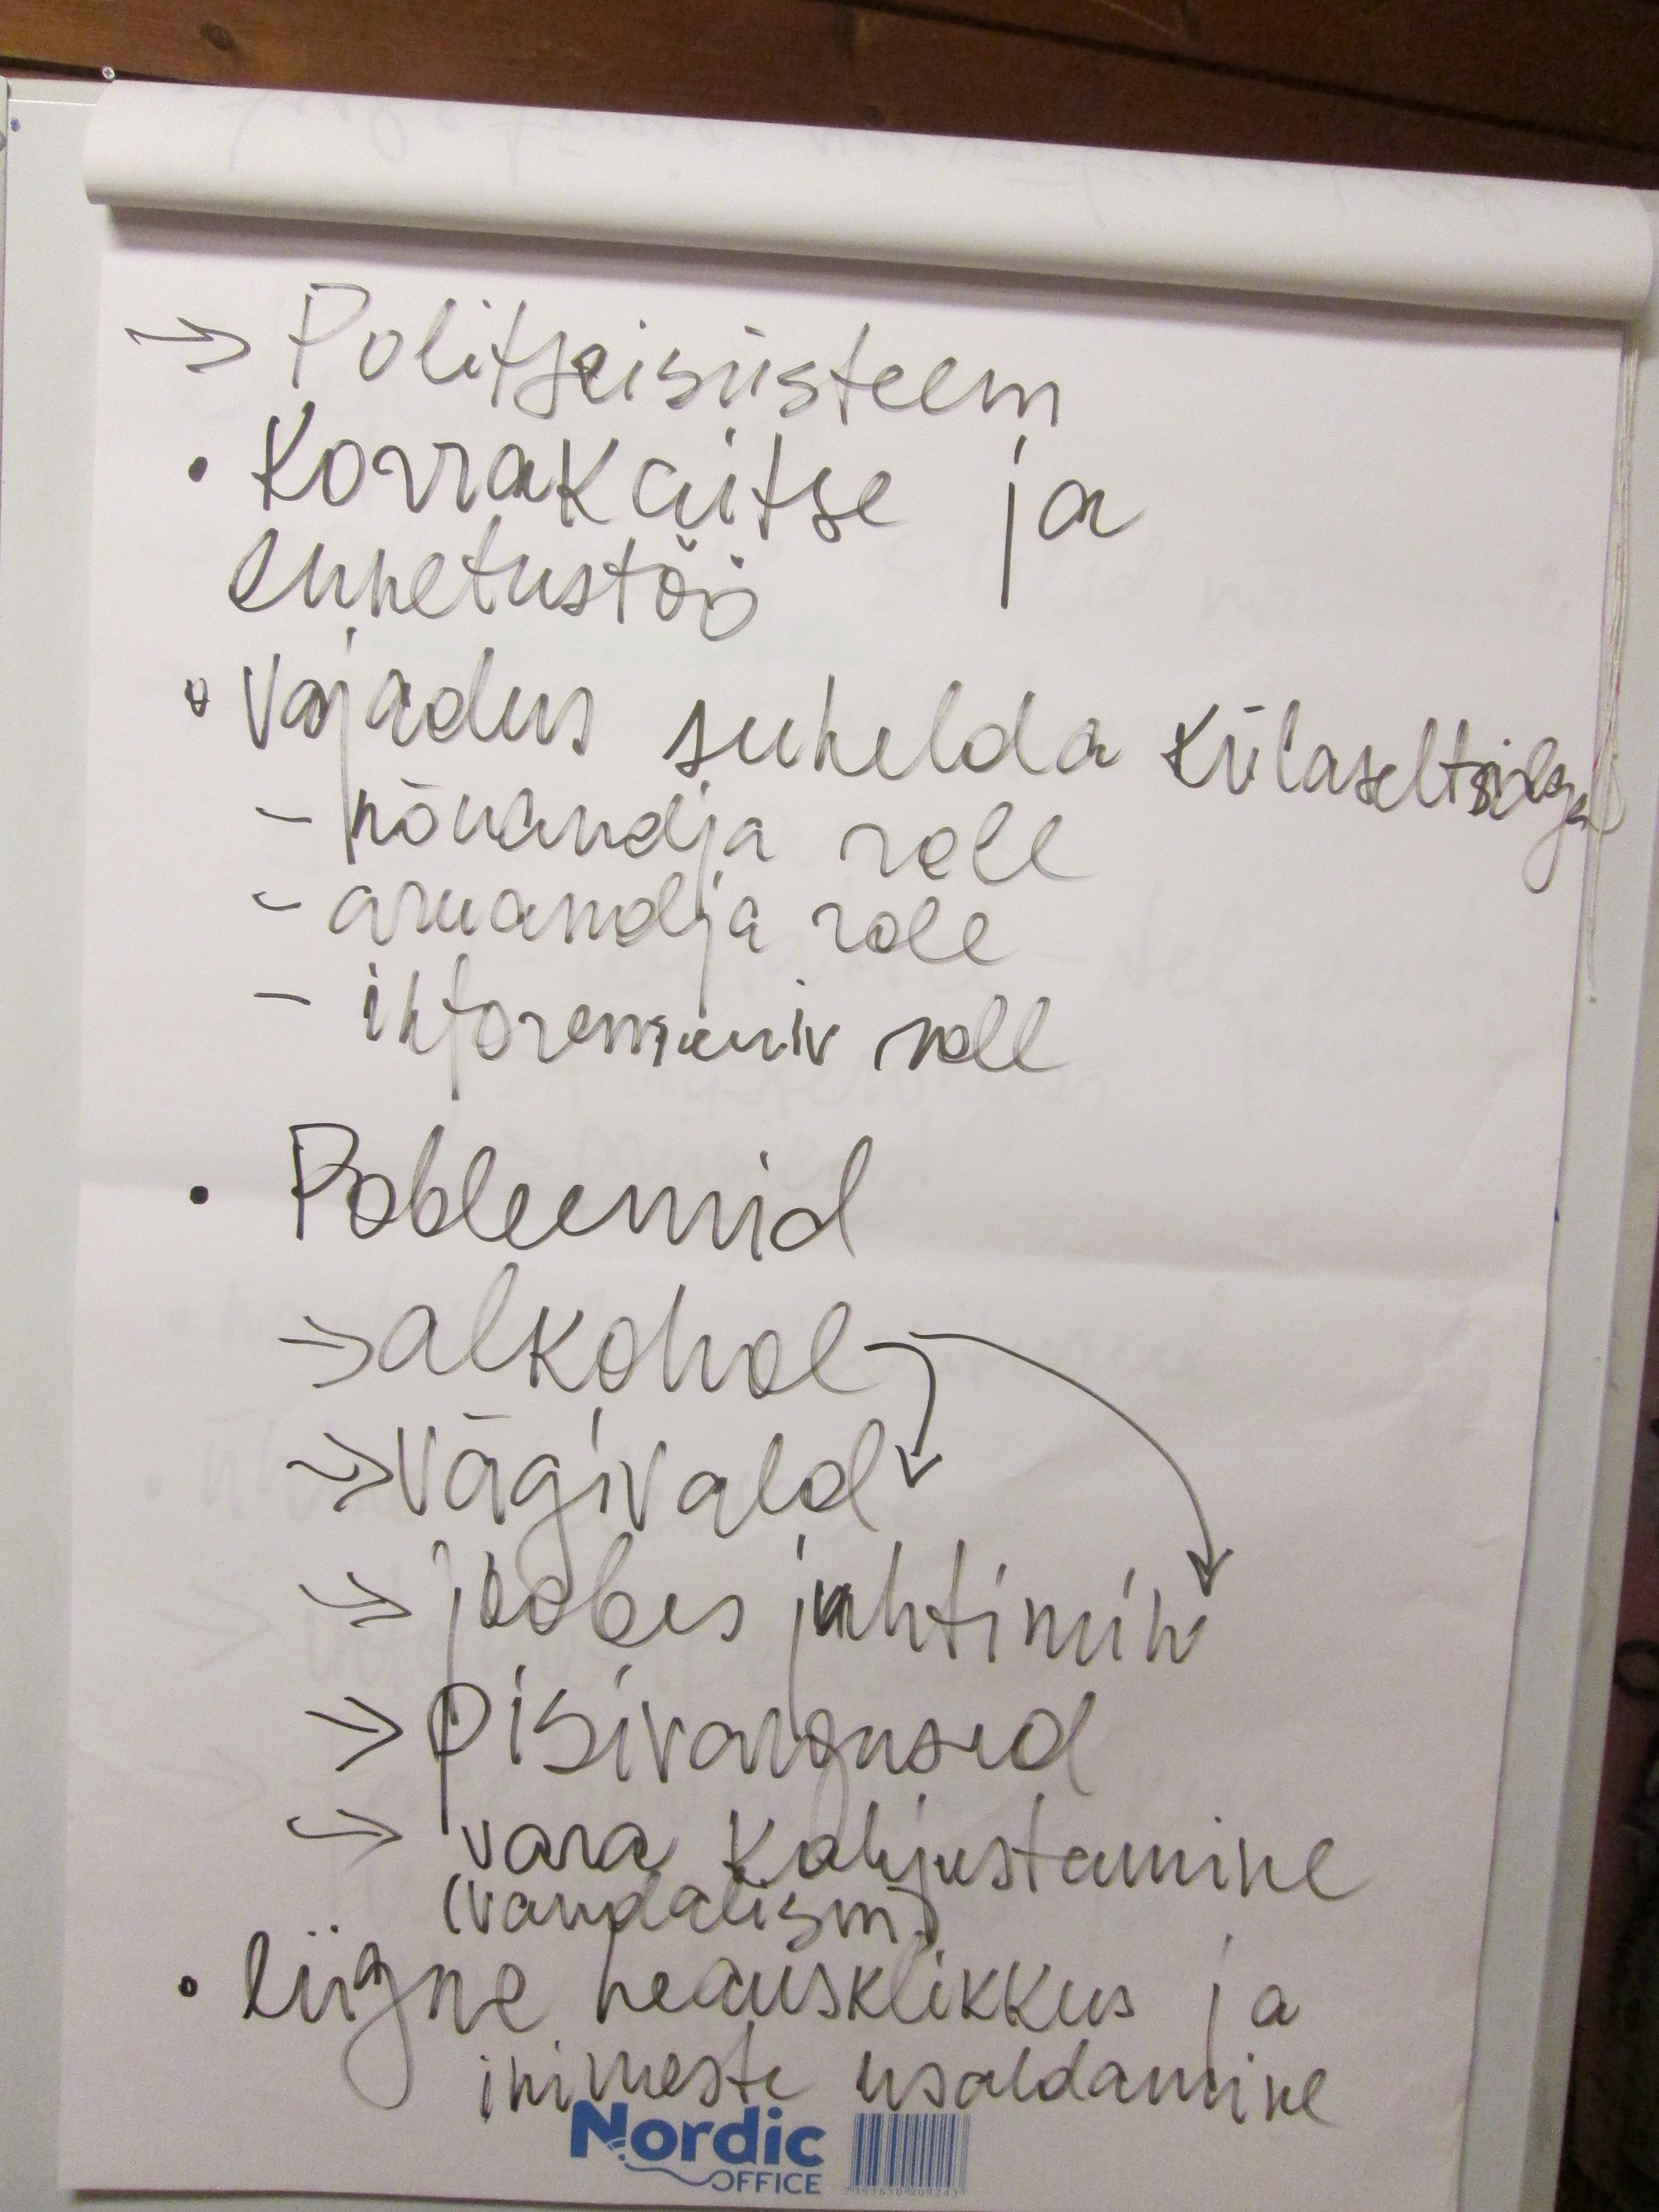 → Politseisüsteem
• Korrakaitse ja
ennetustöö
• Vajadus suhelda külaseltsidega
– nõuandja roll
– aruandja roll
– roll
• Pobleemid
→ alkohol
→ vägivald
→ joobes juhtimin
→ pisivargused
→ vara kahjustamine
(vandalism)
• liigne heausklikkus ja
inimeste usaldamine
Nordic
OFFICE